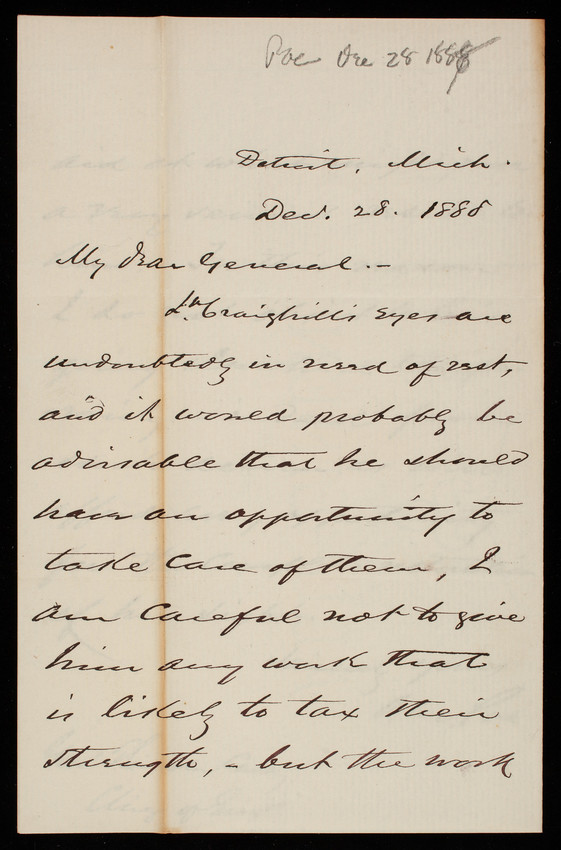 Poe Dec 28 1888
Detroit, Mich.
Dec. 28. 1888
My dear General.-
Lt. Craighill's eyes are
undoubtedly in need of rest,
and it would probably be
advisable that he should
have an opportunity to
take care of them, I
am careful not to give
him any work that
is likely to tax their
strength, - but the work